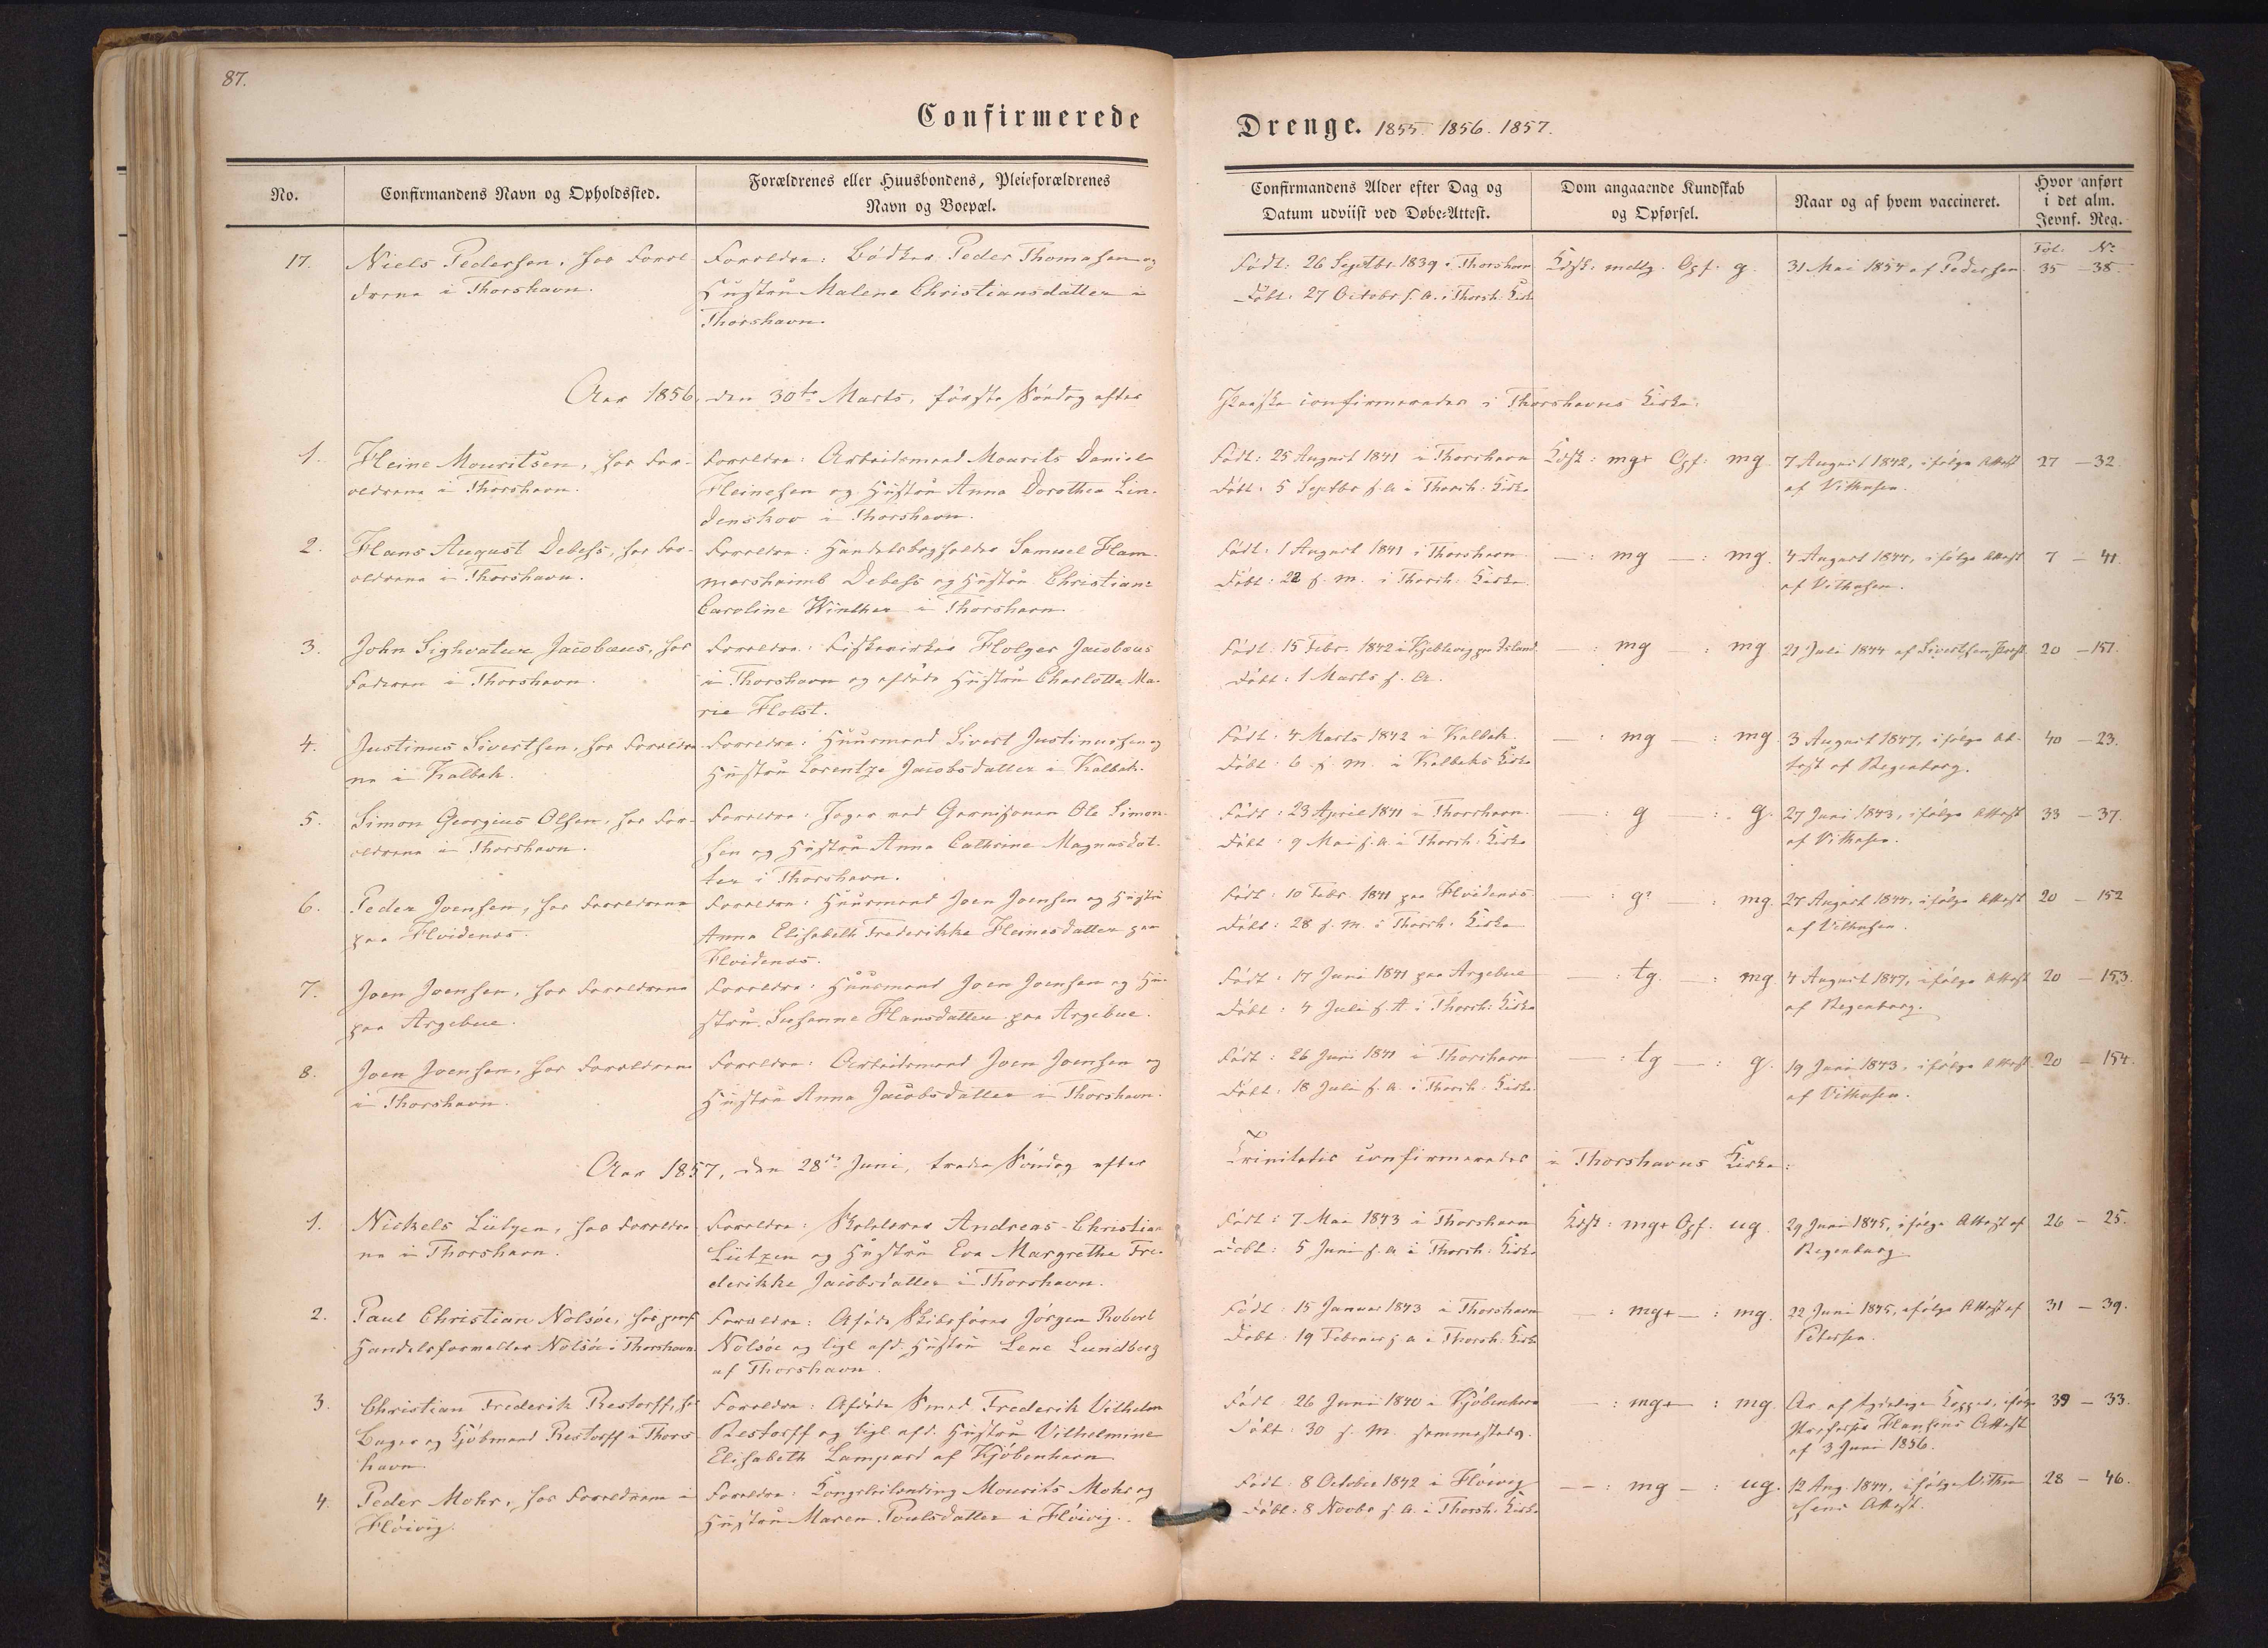 87.
Confirmerede
Drenge. 1855 1856. 1857.
No.
Confirmandens Navn og Opholdssted.
Forældrenes eller Huusbondens, Pleieforældrenes
Navn og Boepæl.
Confirmandens Alder efter Dag og
Datum udviist ved Døbe-Attest.
Dom angaaende Kundskab
og Opførsel.
Naar og af hvem vaccineret.
Hvor anført
i det alm.
Jevnf. Reg.
Fol. No
17.
Niels Pedersen, hos Foræl-
drene i Thorshavn.
Forældre: Bødker Peder Thomasen og
Hustru Malene Christiansdatter i
Thorshavn.
Født: 26 Septbr. 1839 i Thorshavn
Døbt: 27 Octobr s. A. i Thorsh. Kirke
Kdsk: mdlg. Opf. g.
31 Mai 1854 af Pedersen
35 – 38.
Aar 1856, den 30te Marts, første Søndag efter
Paaske confirmeredes i Thorshavns Kirke.
1.
Heine Mouritsen, hos For-
ældrene i Thorshavn.
Forældre: Arbeidsmand Mourits Daniel
Heinesen og Hustru Anna Dorothea Lin-
denskov i Thorshavn.
Født: 25 August 1841 i Thorshavn
Døbt: 5 Septbr s. A. i Thorsh. Kirke
Kdsk: mg+ Opf: mg
7 August 1842, ifølge Attest
af
27 – 32.
2.
Hans August Debess, hos For-
ældrene i Thorshavn.
Forældre: Handelsbogholder Samuel Ham-
mershaimb Debess og Hustru Christiane
Caroline Winther i Thorshavn.
Født: 1 August 1841 i Thorshavn
Døbt: 22 s. M. i Thorsh. Kirke.
— : mg — : mg.
4 August 1844, ifølge Attest
af
7 – 41.
3.
John Sighvatur Jacobæus, hos
Faderen i Thorshavn.
Forældre: Holger Jacobæus
i Thorshavn og afdøde Hustru Charlotte Ma-
rie Holst.
Født: 15 Febr. 1842 i paa Island
Døbt: 1 Marts s. A.
— : mg — : mg
21 Juli 1844 af Sivertsen
20 – 151.
4.
Justinus Sivertsen, hos Forældre-
ne i Kalbak.
Forældre: Huusmand Sivert Justinussen og
Hustru Lorentze Jacobsdatter i Kalbak.
Født: 4 Marts 1842 i Kalbak.
Døbt: 6 s. M. i Kalbaks Kirke
— : mg — : mg.
3 August 1847, ifølge At-
test af Regenburg.
40 – 23.
5.
Simon Georgius Olsen, hos For-
ældrene i Thorshavn.
Forældre: Jæger ved Garnisonen Ole Simon-
sen og Hustru Anna Cathrine Magnusdat-
ter i Thorshavn.
Født: 23 April 1841 i Thorshavn.
Døbt: 9 Mai s. A. i Thorsh. Kirke
— : g — : g.
27 Juni 1843, ifølge Attest
af
33 – 37.
6.
Peder Joensen, hos Forældrene
paa Hvidenæs.
Forældre: Huusmand Joen Joensen og Hustru
Anna Elisabeth Frederikke Heinesdatter paa
Hvidenæs.
Født: 10 Febr. 1841 paa Hvidenæs
Døbt: 28 s. M. i Thorsh. Kirke
— : g? — : mg.
27 August 1844, ifølge Attest
af
20 – 152
7.
Joen Joensen, hos Forældrene
paa Argeboe.
Forældre: Huusmand Joen Joensen og Hu-
stru Susanne Hansdatter paa Argeboe.
Født: 17 Juni 1841 paa Argeboe
Døbt: 4 Juli s. A. i Thorsh. Kirke
— : tg. — : mg.
4 August 1847, ifølge Attest
af Regenburg.
20 – 153.
8.
Joen Joensen, hos Forældrene
i Thorshavn.
Forældre: Arbeidsmand Joen Joensen og
Hustru Anna Jacobsdatter i Thorshavn.
Født: 26 Juni 1841 i Thorshavn
Døbt: 18 Juli s. A. i Thorsh. Kirke.
— : tg — : g.
19 Juni 1843, ifølge Attest
af
20 – 154.
Aar 1857, den 28de Juni, tredie Søndag efter
Trinitatis confirmeredes i Thorshavns Kirke:
1.
Nickels Lützen, hos Forældre-
ne i Thorshavn.
Forældre: Andreas Christian
Lützen og Hustru Eva Margrethe Fre-
derikke Jacobsdatter i Thorshavn.
Født: 7 Mai 1843 i Thorshavn
Døbt: 5 Juni s. A. i Thorsh. Kirke
Kdsk: mg+ Opf. ug.
29 Juni 1845, ifølge Attest af
Regenburg
26 – 25.
2.
Paul Christian Nolsøe, hos
Handelsforvalter Nolsöe i Thorshavn.
Forældre: Afdøde Skibsfører Jörgen Robert
Nolsöe og ligl. afd. Hustru Lene Lundberg
af Thorshavn.
Født: 15 Januar 1843 i Thorshavn
Døbt: 19 Februar s. A. i Thorsh. Kirke
— : mg+ — : mg.
22 Juni 1845, ifølge Attest af
Petersen.
31 – 39.
3.
Christian Frederik Restorff, hos
Bager og Kjöbmand Restorff i Thors-
havn.
Forældre: Afdøde Smed Frederik Vilhelm
Restorff og ligl. afd. Hustru Vilhelmine
Elisabeth Lampard af Kjöbenhavn
Født 26 Juni 1840 i Kjöbenhavn
Døbt: 30 s. M. sammesteds.
— : mg+ — : mg.
Ar af Kopper, ifølge
Professor Hansens Attest
af 3 Juni 1856.
39 – 33.
4.
Peder Mohr, hos Forældrene i
Höivig.
Forældre: Kongsleilænding Mourits Mohr og
Hustru Maren Poulsdatter i Höivig.
Født: 8 October 1842 i Höivig
Døbt: 8 Novbr s. A. i Thorsh. Kirke
— : mg — : ug.
12 Aug. 1844, ifølge
sens Attest.
28 – 46.